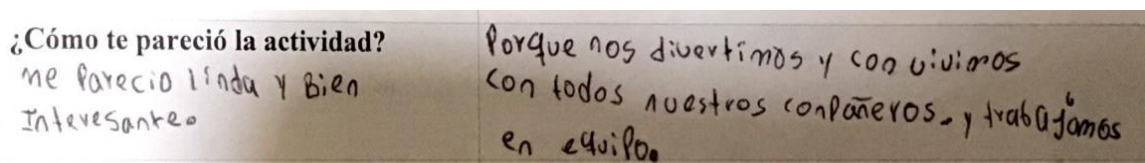 ¿Cómo te pareció la actividad?
me Parecio linda y Bien
Interesante.
Porque nos divertimos y con vivimos
con todos nuestros conpañeros. y trabajamos
en equipo.